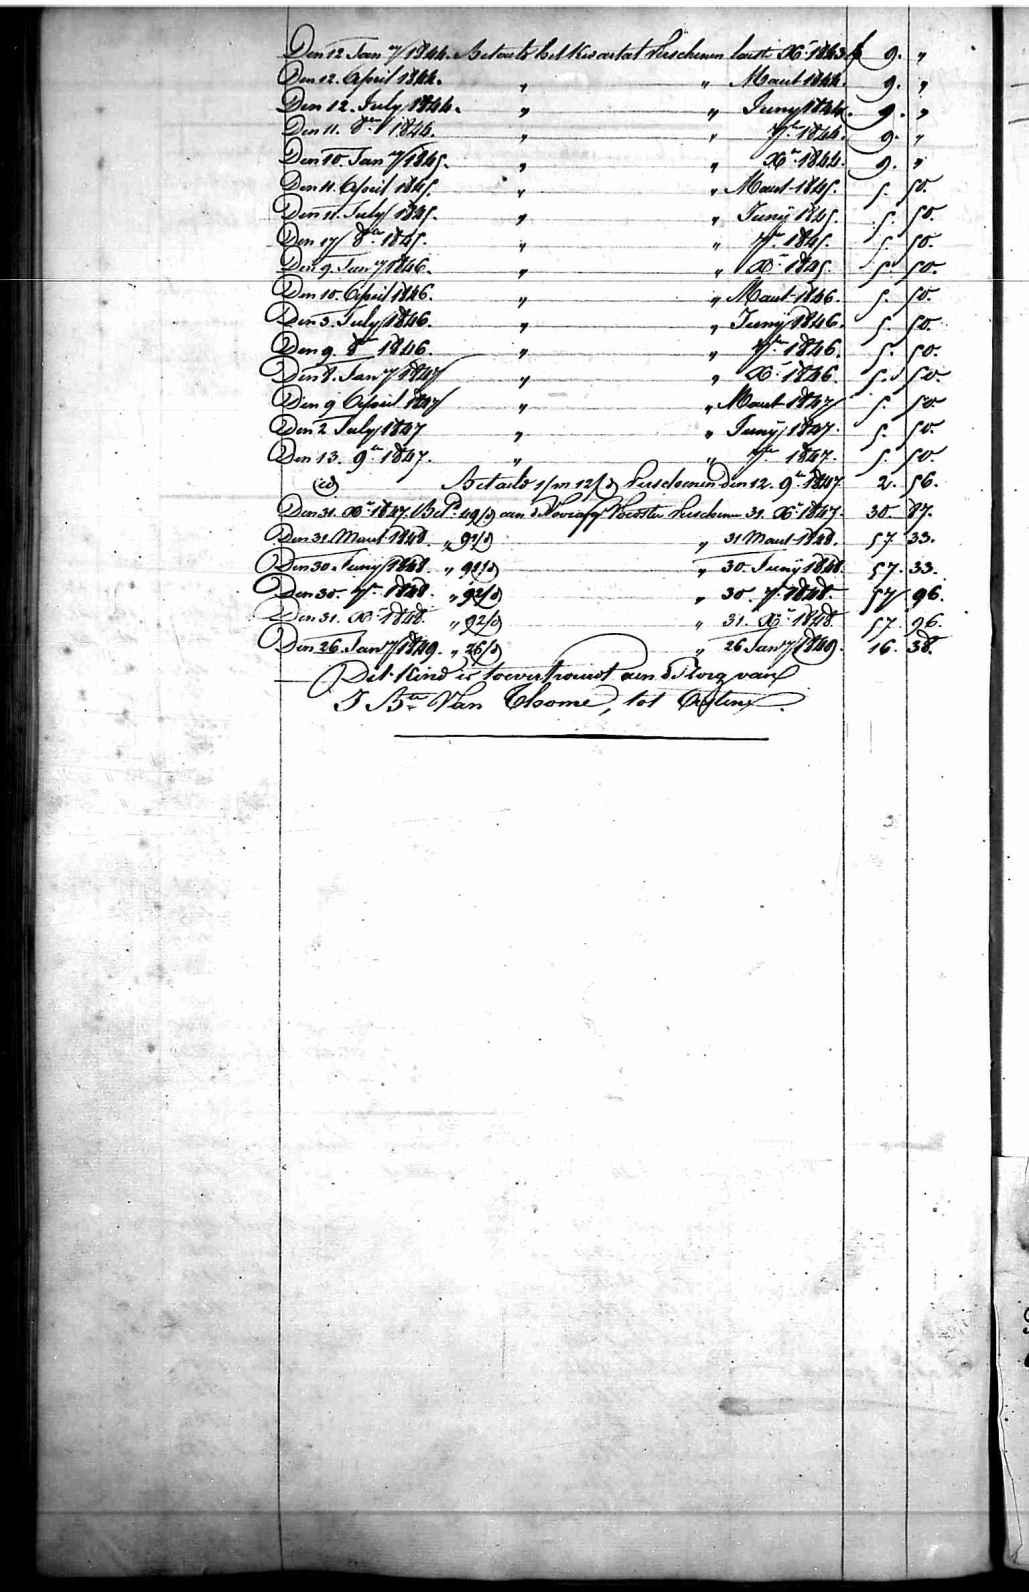 Den 12 Jany 1844. Betaald het Kwartal Verschenen laatst Xr 1843 f 9. „
Den 12. April 1844. „ „ Maart 1844. 9. „
Den 12. July 1844. „ „ Juny 1844. 9. „
Den 11. 8er 1844. „ „ 7er 1844. 9. „
Den 10. Jany 1845. „ „ Xr 1844. 9. „
Den 11. April 1845. „ „ Maart 1845. 5. 50.
Den 11. July 1845. „ „ Juny 1845. 5. 50.
Den 17 8er 1845. „ „ 7er 1845. 5. 50.
Den 9. Jany 1846. „ „ Xr 1845. 5. 50.
Den 10. April 1846. „ „ Maart 1846. 5. 50.
Den 3. July 1846. „ „ Juny 1846. 5. 50.
Den 9. 8er 1846. „ „ 7er 1846. 5. 50.
Den 8. Jany 1847 „ „ Xr 1846. 5. 50.
Den 9 April 1847 „ „ Maart 1847 5. 50.
Den 2 July 1847 „ „ Juny 1847. 5. 50.
Den 13. 9er 1847. „ „ 7er 1847. 5. 50.
id Betaald 1/m 12/d Verschenen den 12. 9er 1847 2. 56.
Den 31. Xr 1847. Betd 49/d aen d' Verschenen 31. Xr 1847. 30. 87.
Den 31. Maart 1848. „ 91/d „ 31 Maart 1848. 57. 33.
Den 30. Juny 1848. „ 91/d „ 30. Juny 1848. 57. 33.
Den 30. 7er 1848. „ 92/d „ 30. 7r 1848. 57 96.
Den 31. Xr 1848. „ 92/d „ 31. Xr 1848. 57. 96.
Den 26 Jany 1849. „ 26/d „ 26 Jany 1849. 16. 38.
Dit Kind is toevertrouwt aen d' Zorg van
J Bte Van Thome, tot